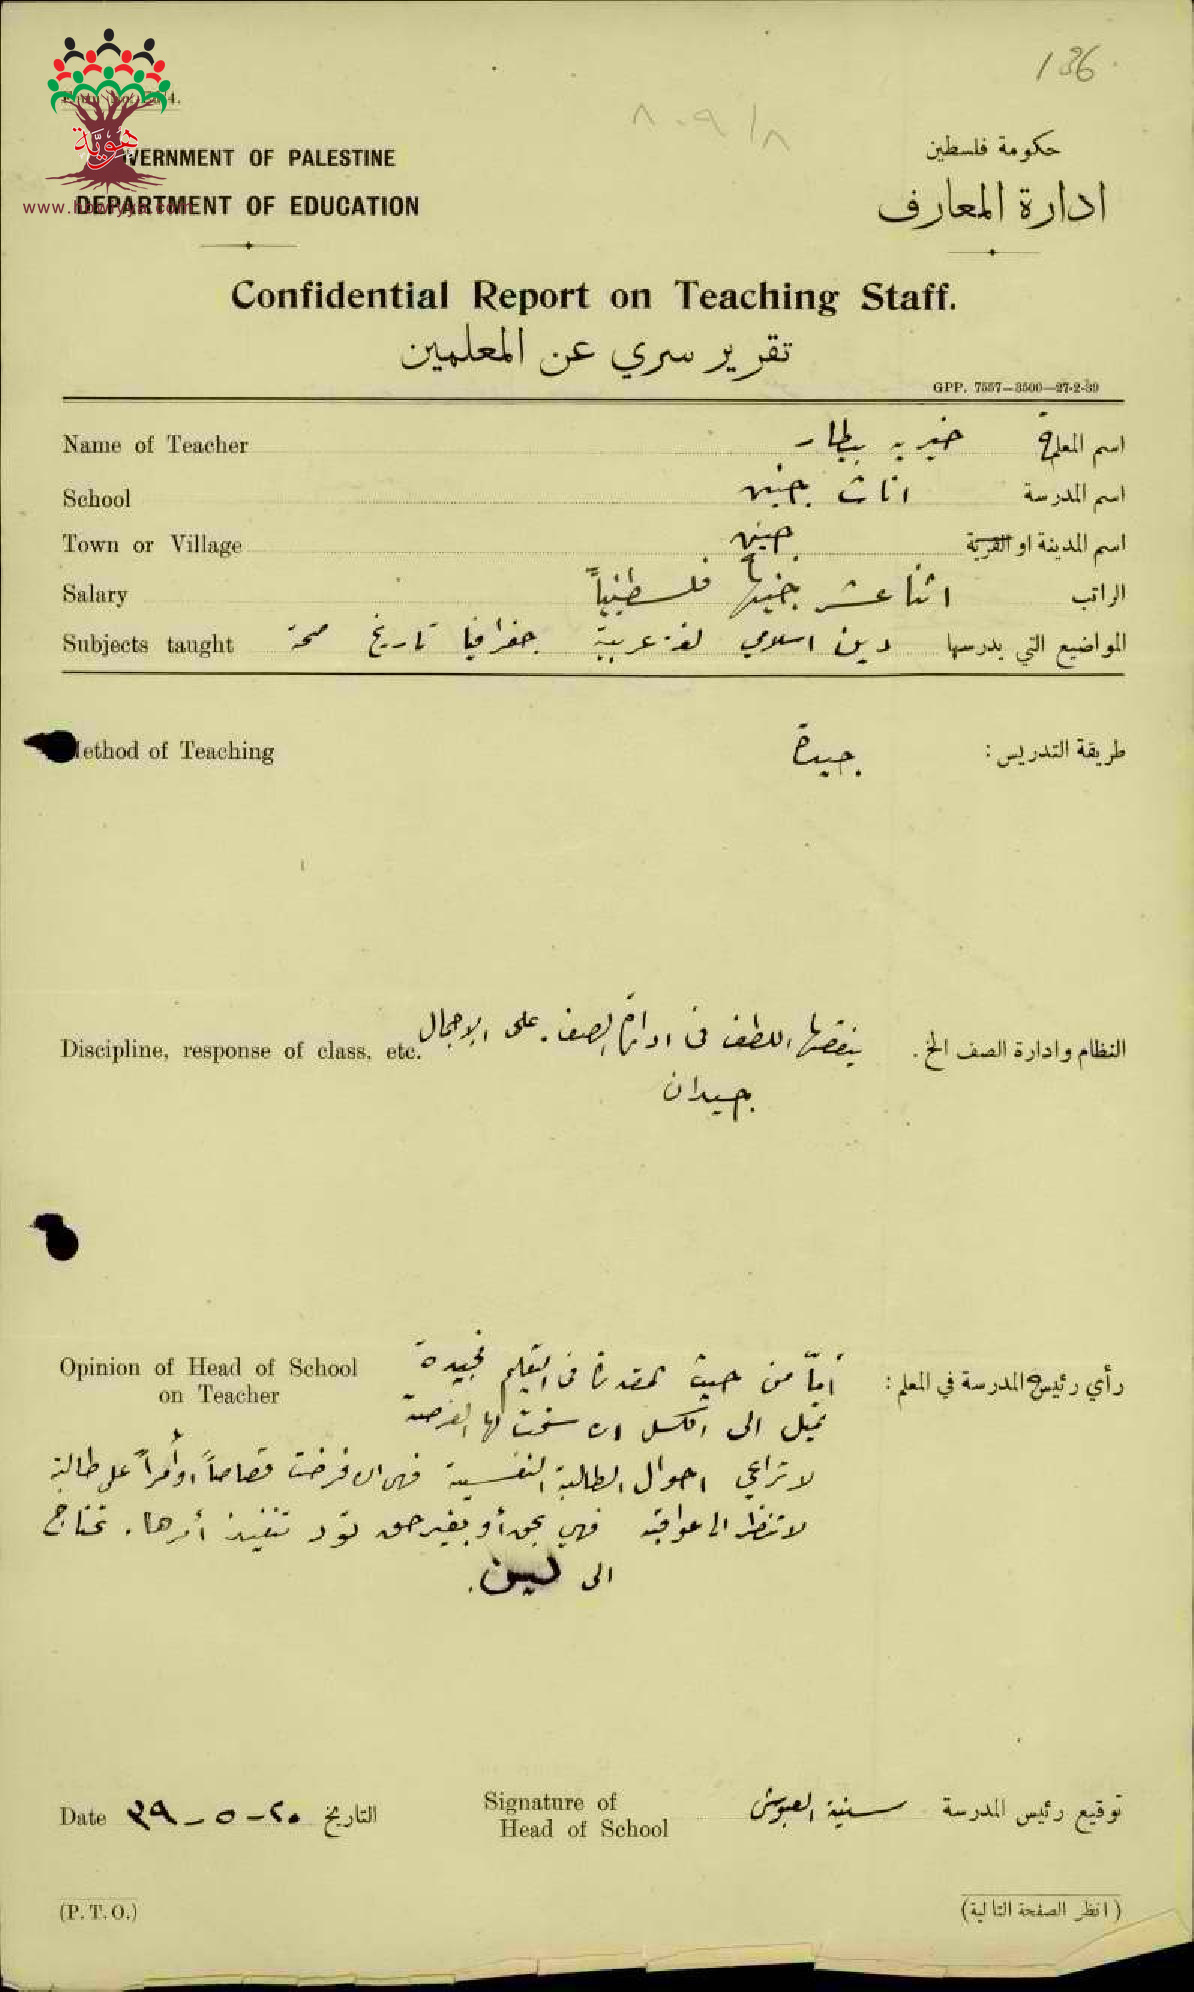 136
٨٠٩/٨
هوية
GOVERNMENT OF PALESTINE
حكومة فلسطين
DEPARTMENT OF EDUCATION
ادارة المعارف
Confidential Report on Teaching Staff.
تقرير سري عن المعلمين
GPP. 7557—3500—27-2-39
Name of Teacher خيريه بيطار اسم المعلمة
School اناث جنين اسم المدرسة
Town or Village جنين اسم المدينة او القرية
Salary اثنا عشر جنيهاً فلسطينياً الراتب
Subjects taught دين اسلامي لغة عربية جغرافيا تاريخ صحة المواضيع التي يدرسها
Method of Teaching جيدة طريقة التدريس :
Discipline, response of class, etc. ينقصها اللطف في ادارة الصف. على الاجمال النظام وادارة الصف الخ .
جيدان
Opinion of Head of School أمّا من حيث المقدرة في التعليم فجيدة رأي رئيس المدرسة في المعلم :
on Teacher
تميل الى الكسل ان سنحت لها الفرصة
لا تراعي احوال الطالبة النفسية فهي ان فرضت قصاصاً او أمراً على طالبة
لا تنظر الى عواقبه فهي بحق أو بغير حق تود تنفيذ أمرها. تحتاج
الى لين.
Date ٢٠-٥-٣٩ التاريخ Signature of Head of School سنية العبوشي توقيع رئيس المدرسة
(P. T. O.) (انظر الصفحة التالية)